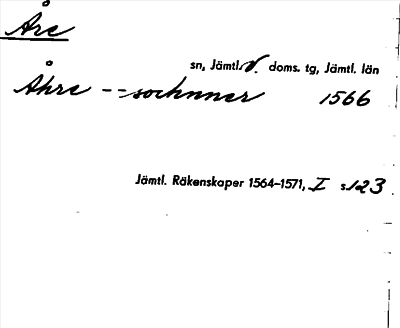 Åre
sn, Jämtl. v. doms. tg, Jämtl. län
Åhre -- sochnner 1566
Jämtl. Räkenskaper 1564-1571, I s. 123